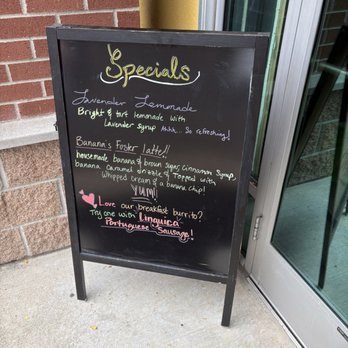 Specials
Lavender Lemonade
Bright & tart lemonade with
Lavender syrup Ahhh.. So refreshing!
Banana's Foster latte!!
housemade banana & brown sugar cinnamon syrup,
banana caramel drizzle & topped with
Whipped cream & a banana chip!
YUM!
Love our breakfast burrito?
Try one with Linguica
Portuguese Sausage!